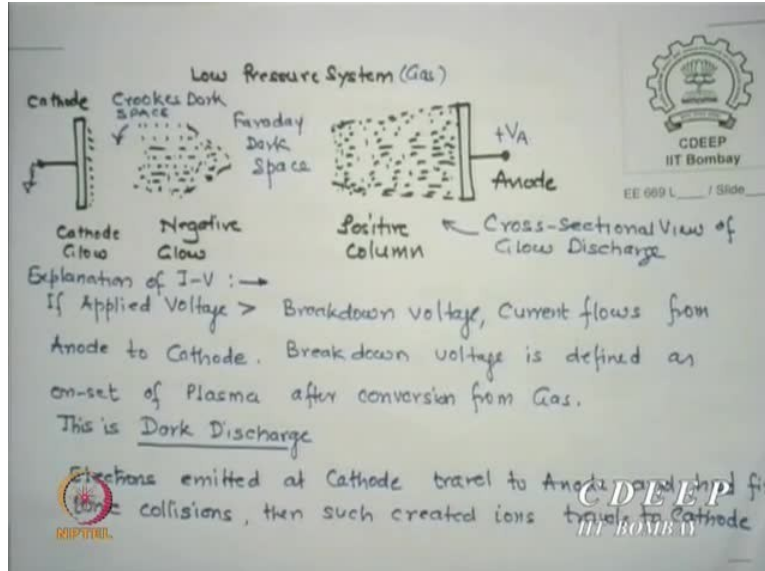 Low Pressure System (Gas)
Cathode
Crookes Dark
SPACE
Faraday
Dark
Space
+VA
Anode
Cathode
Glow
Negative
Glow
Positive
Column
Cross-Sectional View of
Glow Discharge
CDEEP
IIT Bombay
EE 669 L____ / Slide____
Explanation of I-V :→
If Applied Voltage > Breakdown voltage, Current flows from
Anode to Cathode. Breakdown voltage is defined as
on-set of Plasma after conversion from Gas.
This is Dark Discharge
Electrons emitted at Cathode travel to Anode and
collisions, then such created ions travel to Cathode
NPTEL
CDEEP
IIT BOMBAY